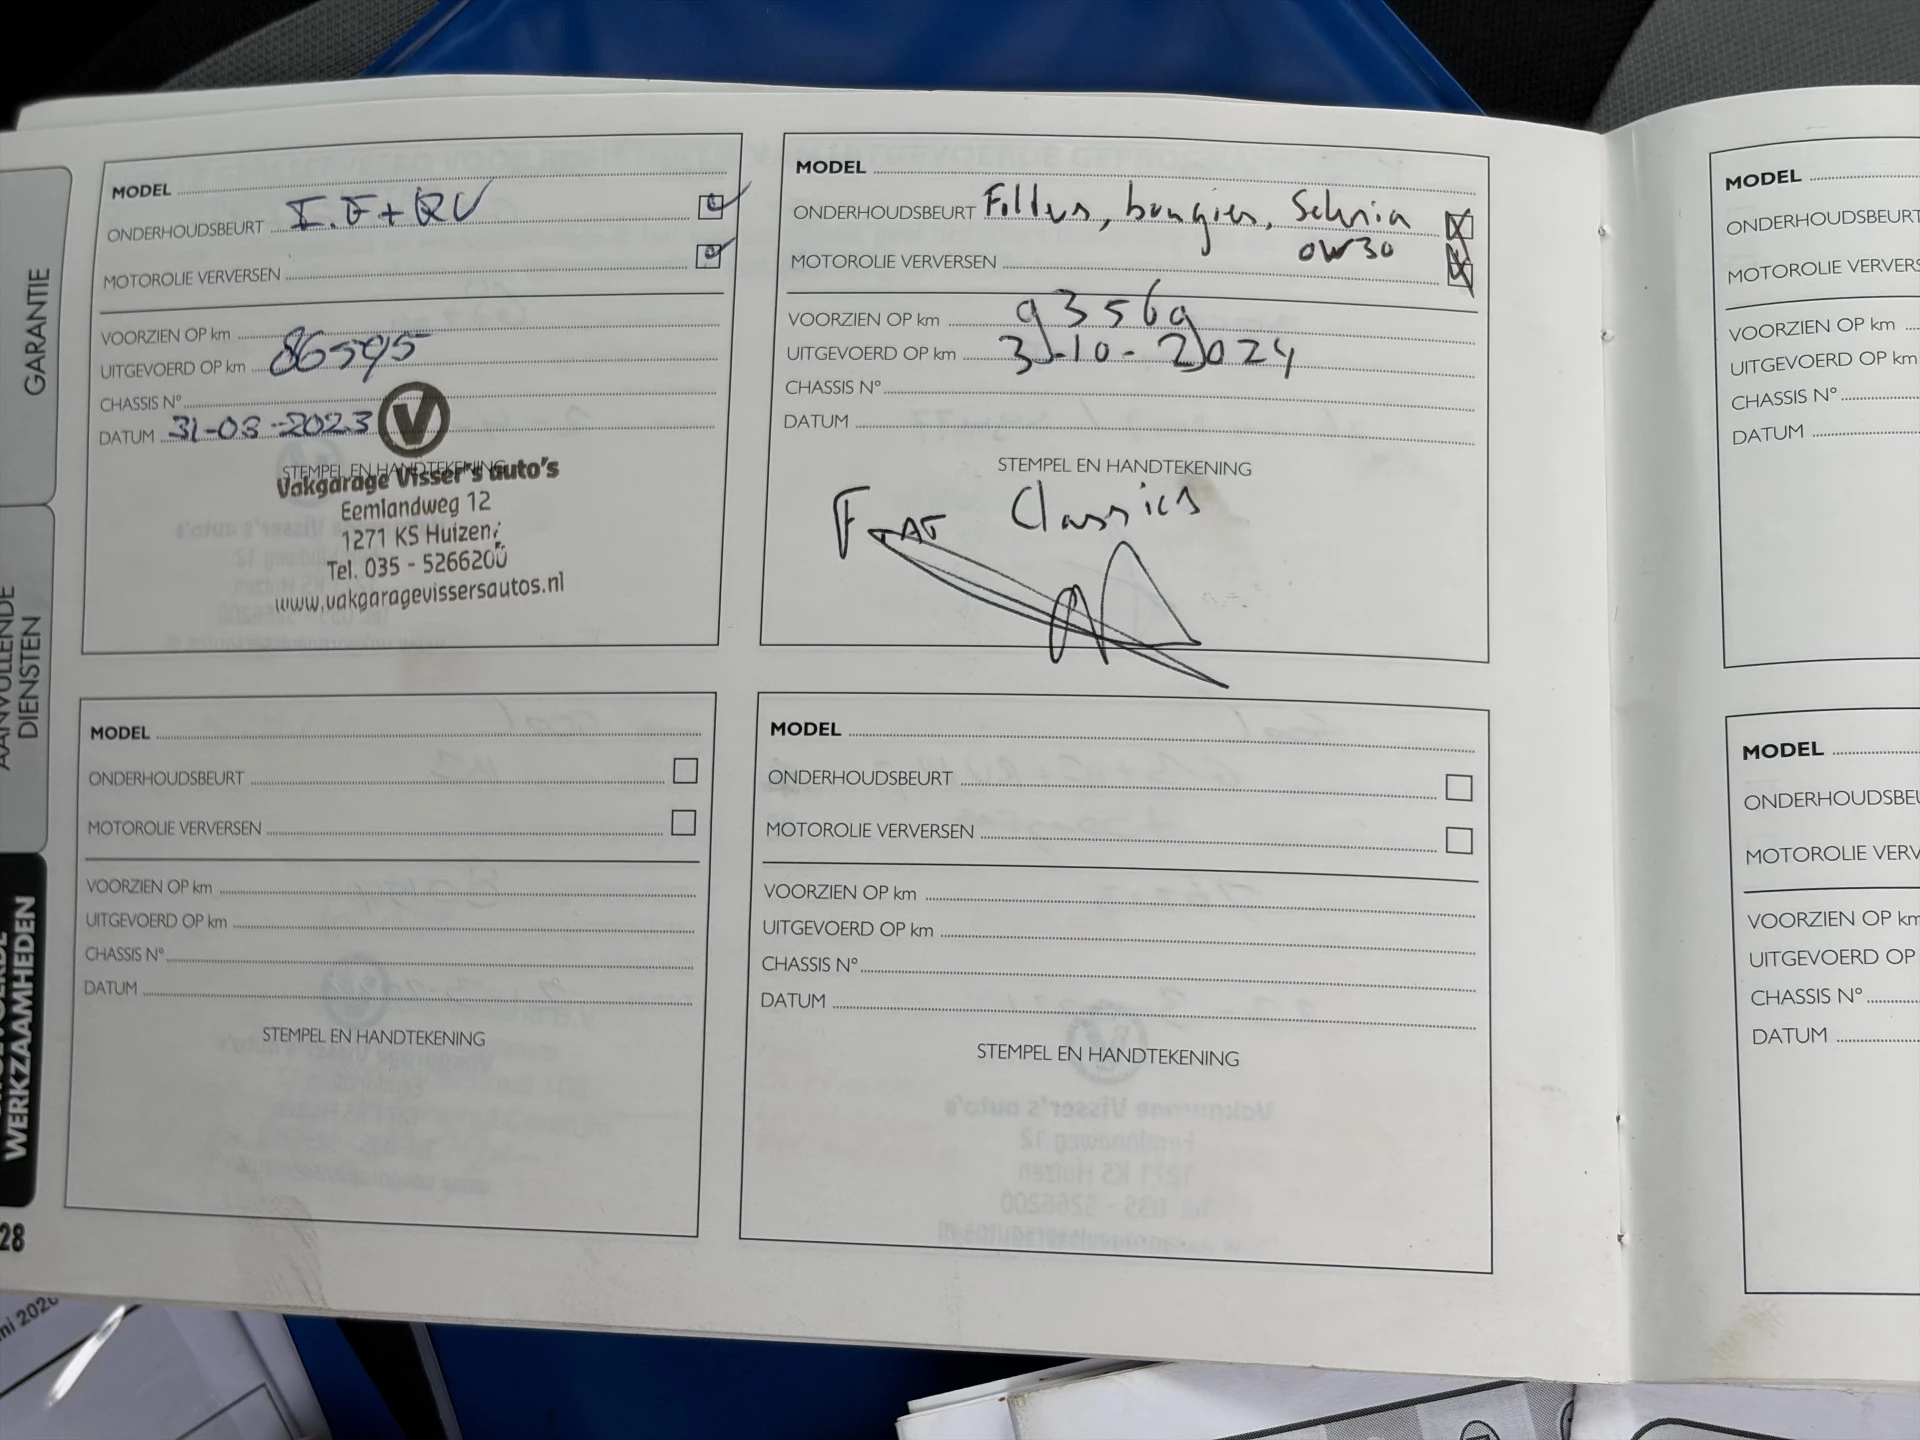 GARANTIE
AANVULLENDE
DIENSTEN
WERKZAAMHEDEN
28
MODEL
ONDERHOUDSBEURT
MOTOROLIE VERVERSEN
VOORZIEN OP km
UITGEVOERD OP km 86595
CHASSIS N°
DATUM 31-03-2023
STEMPEL EN HANDTEKENING
Vakgarage Visser's auto's
Eemlandweg 12
1271 KS Huizen
Tel. 035 - 5266200
www.vakgaragevissersautos.nl
MODEL
ONDERHOUDSBEURT Filters, bougies,
MOTOROLIE VERVERSEN 0W30
VOORZIEN OP km 93569
UITGEVOERD OP km 3-10-2024
CHASSIS N°
DATUM
STEMPEL EN HANDTEKENING
Classics
MODEL
ONDERHOUDSBEURT
MOTOROLIE VERVERSEN
VOORZIEN OP km
UITGEVOERD OP km
CHASSIS N°
DATUM
STEMPEL EN HANDTEKENING
MODEL
ONDERHOUDSBEURT
MOTOROLIE VERVERSEN
VOORZIEN OP km
UITGEVOERD OP km
CHASSIS N°
DATUM
STEMPEL EN HANDTEKENING
MODEL
ONDERHOUDSBEURT
MOTOROLIE VERVERS
VOORZIEN OP km
UITGEVOERD OP km
CHASSIS N°
DATUM
MODEL
ONDERHOUDSBEU
MOTOROLIE VERV
VOORZIEN OP km
UITGEVOERD OP
CHASSIS N°
DATUM